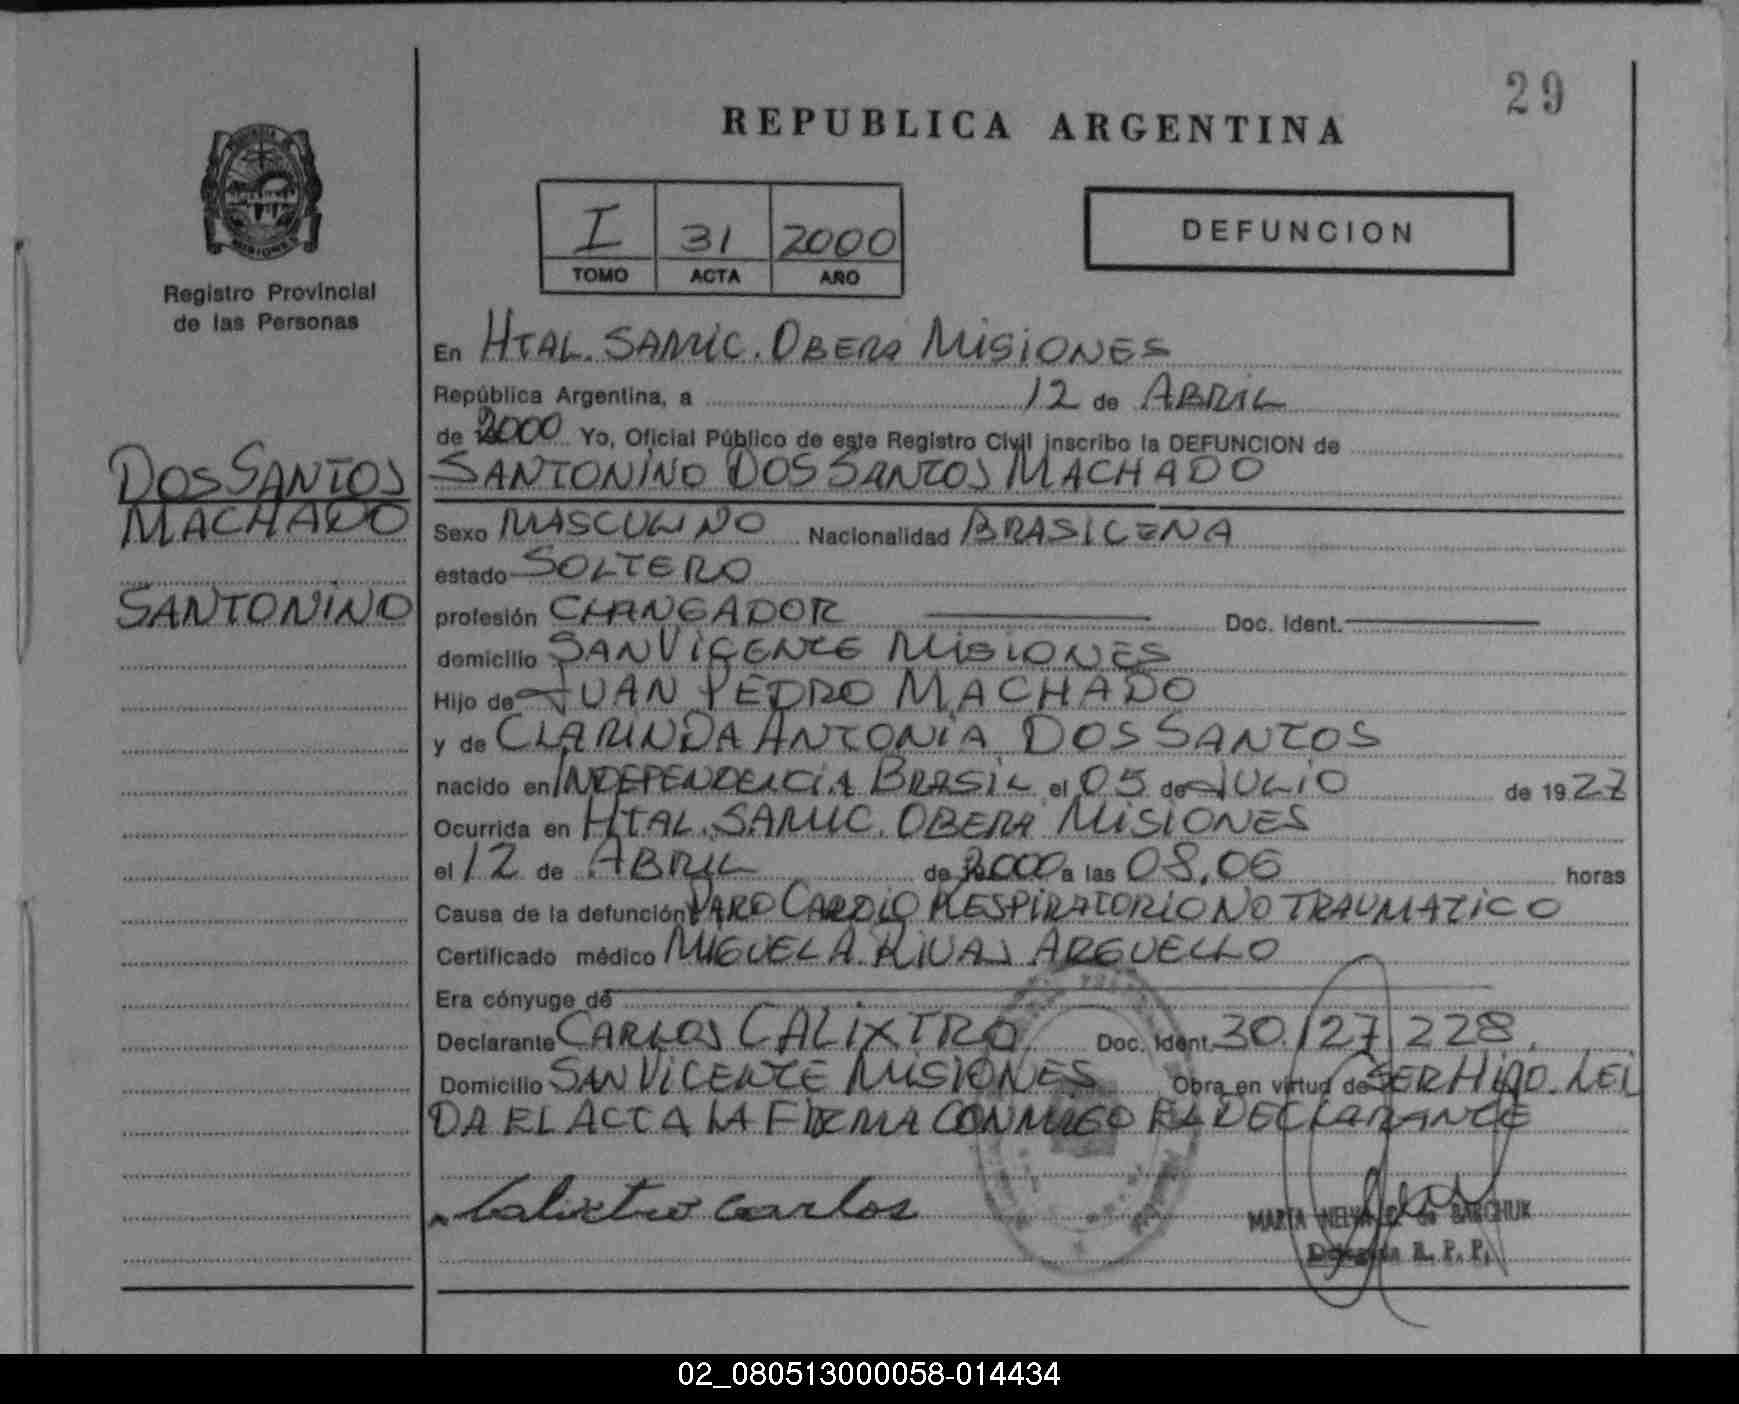 29
REPUBLICA ARGENTINA
I 31 2000
TOMO ACTA AÑO
DEFUNCION
MISIONES
Registro Provincial
de las Personas
DOS SANTOS
MACHADO
SANTONINO
En HTAL. SAMIC. OBERA MISIONES
República Argentina, a 12 de ABRIL
de 2000 Yo, Oficial Público de este Registro Civil inscribo la DEFUNCION de
SANTONINO DOS SANTOS MACHADO
Sexo MASCULINO Nacionalidad BRASILENA
estado SOLTERO
profesión CHANGADOR Doc. Ident.
domicilio SAN VICENTE MISIONES
Hijo de JUAN PEDRO MACHADO
y de CLARINDA ANTONIA DOS SANTOS
nacido en INDEPENDENCIA BRASIL el 05 de JULIO de 1927
Ocurrida en HTAL. SAMIC. OBERA MISIONES
el 12 de ABRIL de 2000 a las 08,06 horas
Causa de la defunción PARO CARDIO RESPIRATORIO NO TRAUMATICO
Certificado médico MIGUEL A. RIVAS ARGUELLO
Era cónyuge de
Declarante CARLOS CALIXTRO Doc. Ident. 30.127.228.
Domicilio SAN VICENTE MISIONES Obra en virtud de SER HIJO. LEI
DA EL ACTA LA FIRMA CONMIGO EL DECLARANTE
Calixtro Carlos
MARTA de BARCHUK
Delegada R. P. P.
02_080513000058-014434